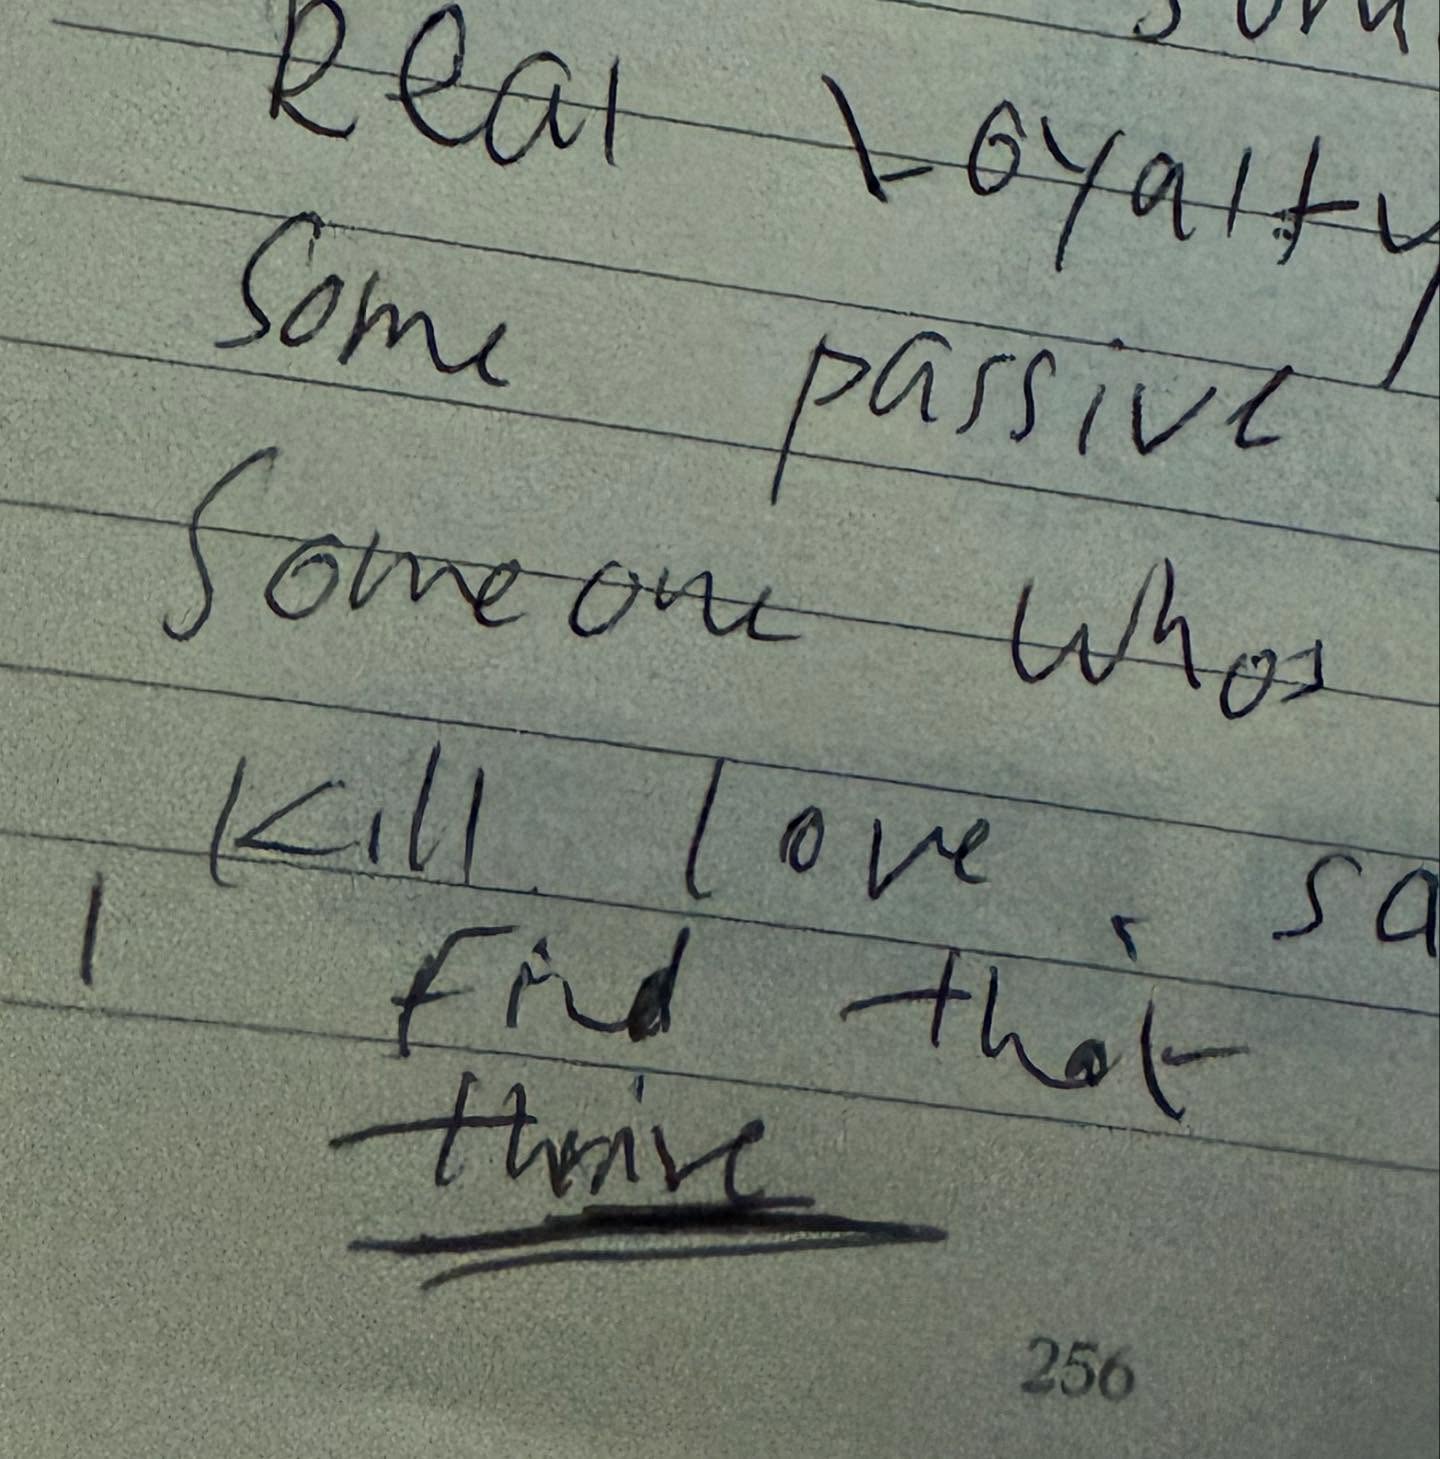 Real Loyalty
Some passive
Someone whos
Kill love, sa
I find that
thrive
256